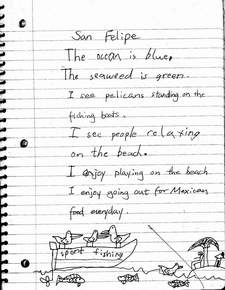 San Felipe
The ocean is blue.
The seaweed is green.
I see pelicans standing on the
fishing boats.
I see people relaxing
on the beach.
I enjoy playing on the beach
I enjoy going out for Mexican
food everyday.
sport fishing